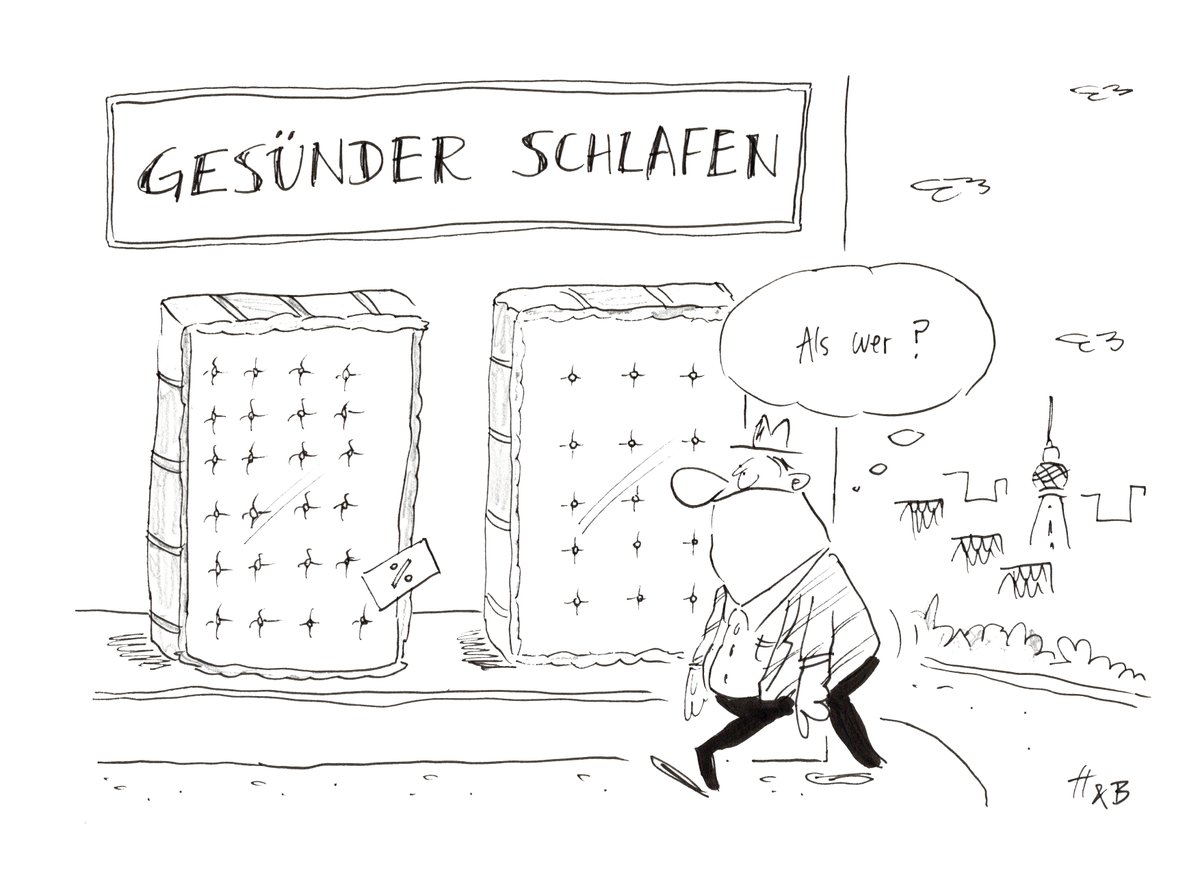 GESÜNDER SCHLAFEN
Als wer?
%
H&B